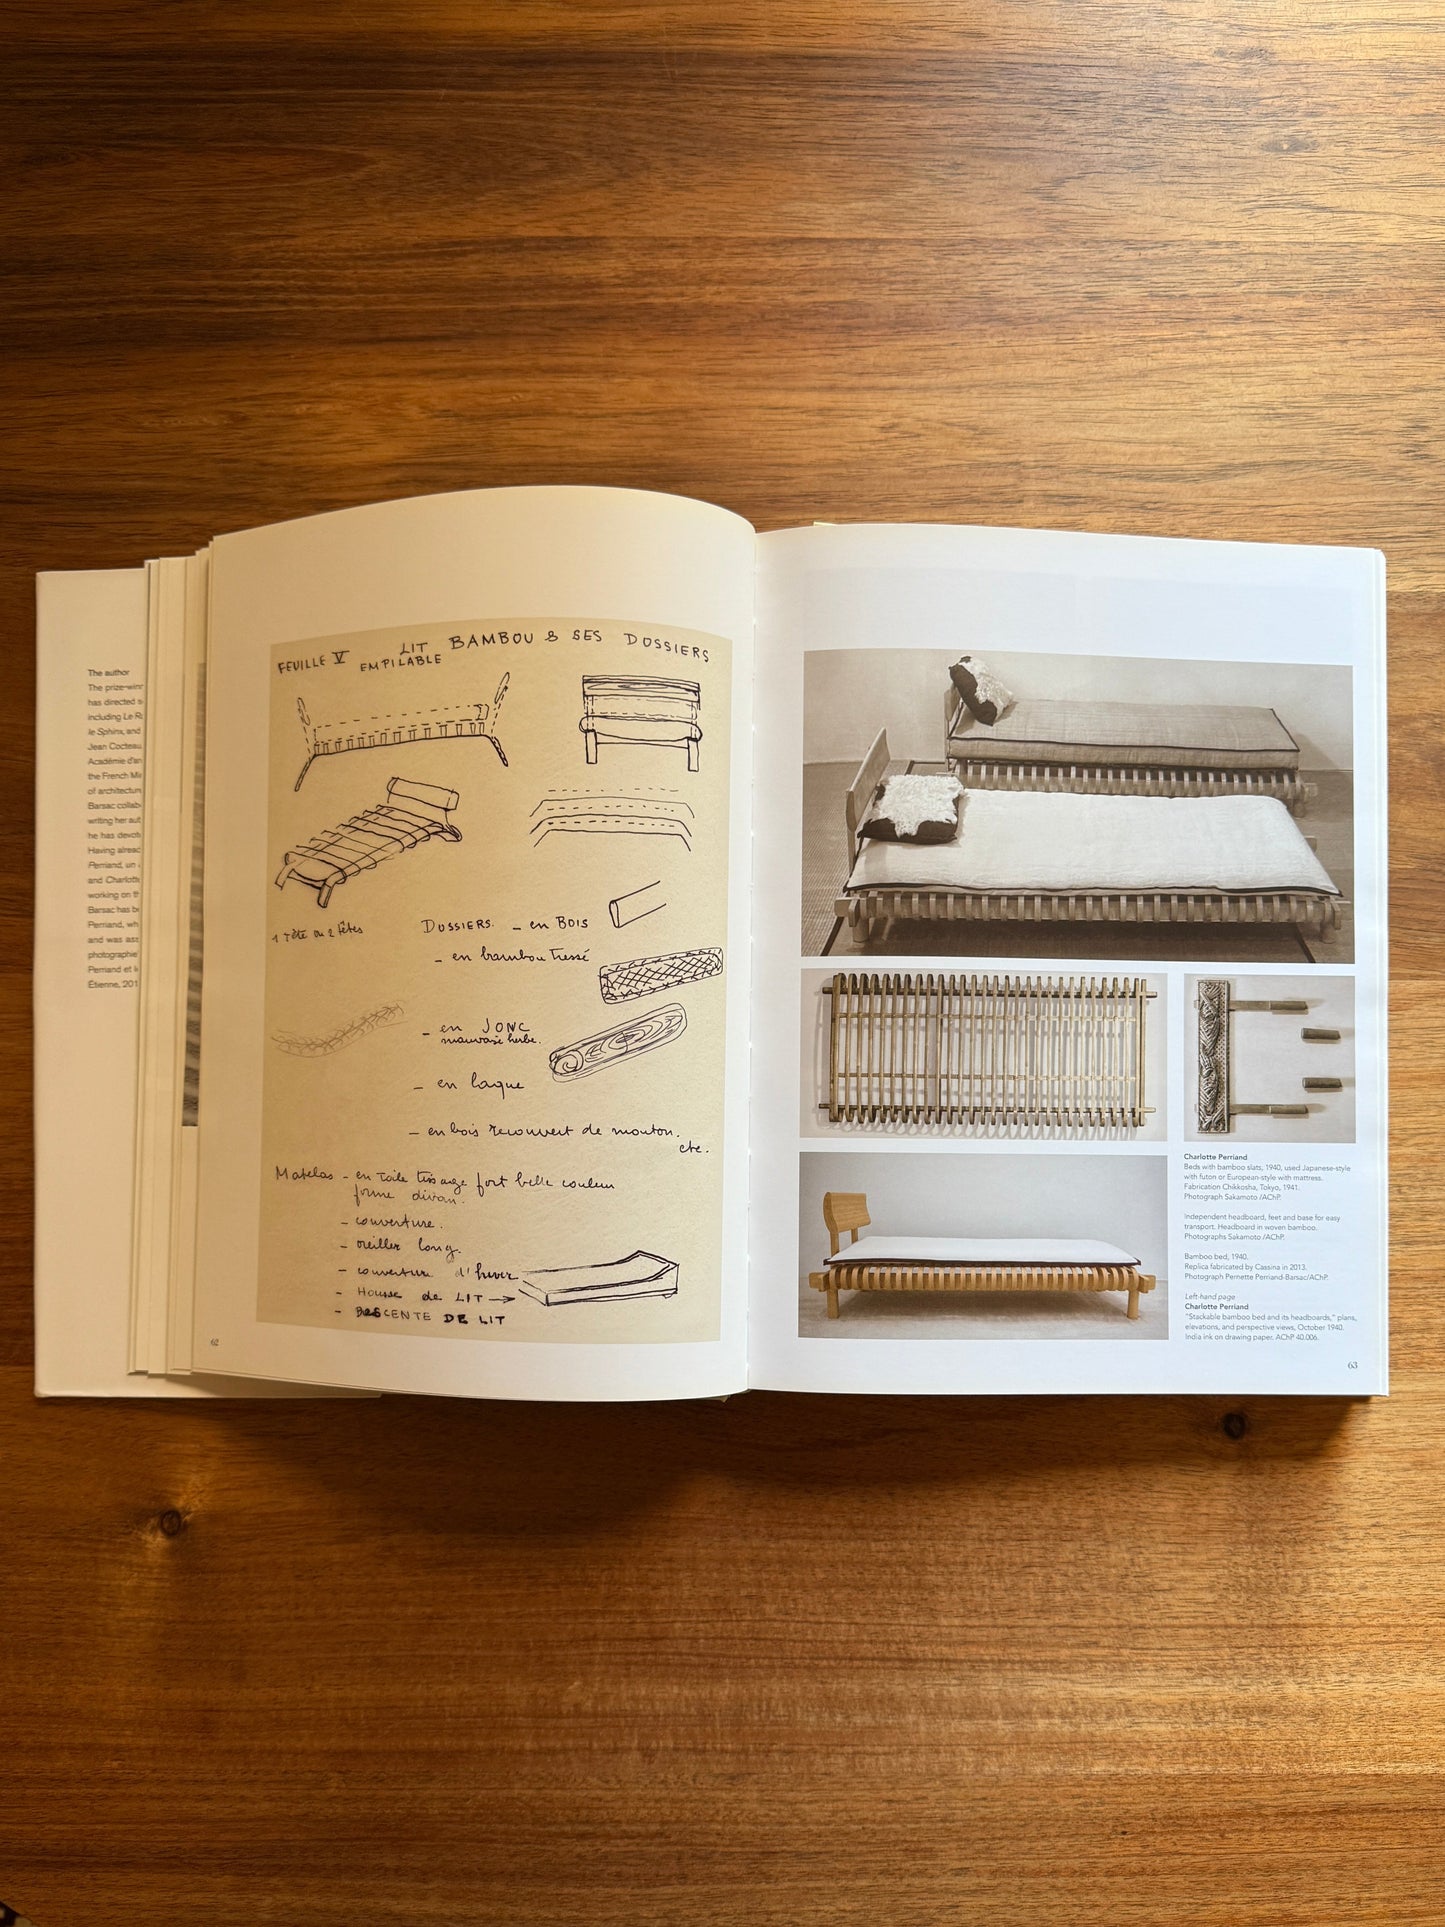 The author
The prize-winn
has directed s
including Le R
le Sphinx, and
Jean Cocteau
Académie d'ar
the French Mi
of architectur
Barsac collab
writing her aut
he has devot
Having alread
Perriand, un
and Charlott
working on th
Barsac has be
Perriand, wh
and was ass
photographie
Perriand et l
Étienne, 201
FEUILLE V LIT EMPILABLE BAMBOU & SES DOSSIERS
1 Tête ou 2 têtes
DOSSIERS. – en BOIS
– en bambou Tressé
– en JONC
mauvaise herbe.
– en laque
– en bois recouvert de mouton.
etc.
Matelas – en Toile tissage fort belle couleur
forme divan.
– couverture.
– oreiller long.
– couverture d'hiver
– HOUSSE de LIT →
– DESCENTE DE LIT
62
Charlotte Perriand
Beds with bamboo slats, 1940, used Japanese-style
with futon or European-style with mattress.
Fabrication Chikkosha, Tokyo, 1941.
Photograph Sakamoto /AChP.
Independent headboard, feet and base for easy
transport. Headboard in woven bamboo.
Photographs Sakamoto /AChP.
Bamboo bed, 1940.
Replica fabricated by Cassina in 2013.
Photograph Pernette Perriand-Barsac/AChP.
Left-hand page
Charlotte Perriand
"Stackable bamboo bed and its headboards," plans,
elevations, and perspective views, October 1940.
India ink on drawing paper. AChP 40.006.
63